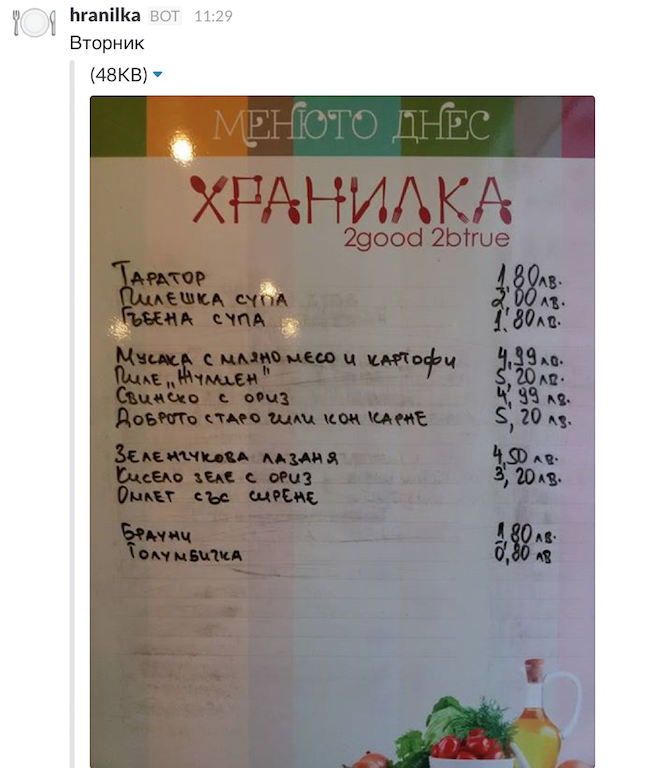 hranilka BOT 11:29
Вторник
(48KB)
МЕНЮТО ДНЕС
ХРАНИЛКА
2good 2btrue
ТАРАТОР 1,80лв.
ПИЛЕШКА СУПА 2,00лв.
ГЪБЕНА СУПА 1.80лв.
МУСАКА С МЛЯНО МЕСО И КАРТОФИ 4,99лв.
ПИЛЕ „ЖУЛИЕН" 5,20лв.
СВИНСКО С ОРИЗ 4,99лв.
ДОБРОТО СТАРО ЧИЛИ КОН КАРНЕ 5,20лв.
ЗЕЛЕНЧУКОВА ЛАЗАНЯ 4,50лв.
КИСЕЛО ЗЕЛЕ С ОРИЗ 3,20лв.
ОМЛЕТ СЪС СИРЕНЕ
БРАУНИ 1,80лв.
ТОЛУМБИЧКА 0,80лв